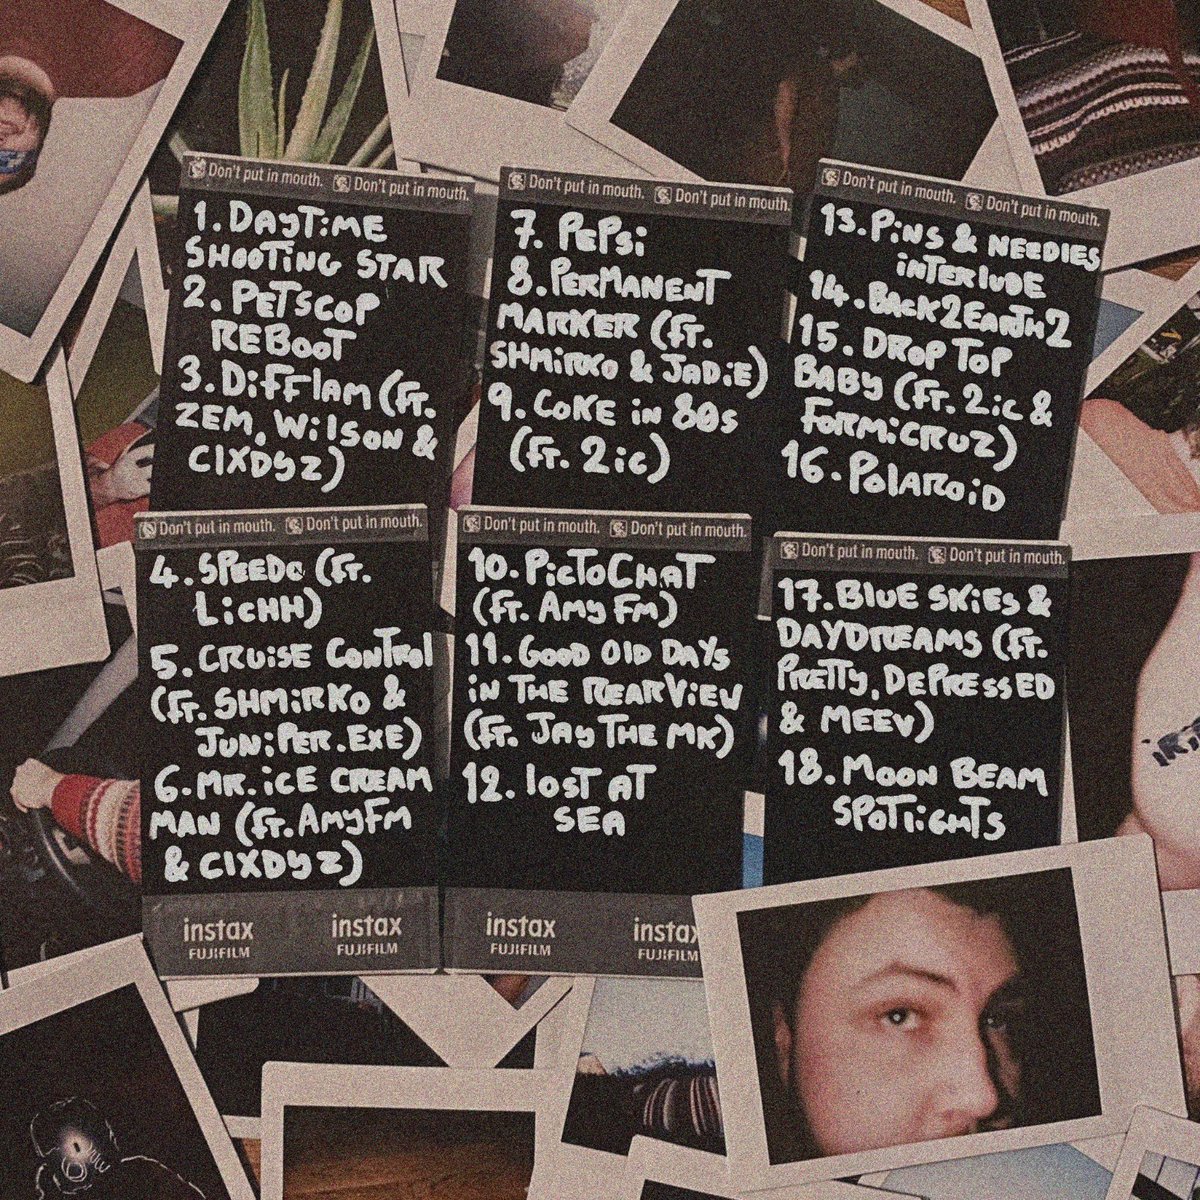 Don't put in mouth. Don't put in mouth.
1. DAYTiME
SHOOTiNG STAR
2. PETSCOP
REBOOT
3. DiFFlAM (FT.
ZEM, WilSON &
ClXDYZ)
Don't put in mouth. Don't put in mouth.
4. SPEEDO (FT.
LiCHH)
5. CRUiSE CONTROl
(FT. SHMiRKO &
JUNiPER.EXE)
6. MR. iCE CREAM
MAN (FT. AMYFM
& ClXDYZ)
instax instax
FUJIFILM FUJIFILM
Don't put in mouth. Don't put in mouth.
7. PEPSi
8. PERMANENT
MARKER (FT.
SHMiRKO & JADiE)
9. COKE iN 80s
(FT. 2ic)
Don't put in mouth. Don't put in mouth.
10. PiCTOCHAT
(FT. AMY FM)
11. GOOD OlD DAYS
iN THE REARViEW
(FT. JAY THE MK)
12. lOST AT
SEA
instax instax
FUJIFILM FUJIFILM
Don't put in mouth. Don't put in mouth.
13. PiNS & NEEDlES
iNTERlUDE
14. BACK2EARTH2
15. DROP TOP
BABY (FT. 2ic &
FORMiCRUZ)
16. POlAROiD
Don't put in mouth. Don't put in mouth.
17. BlUE SKiES &
DAYDREAMS (FT.
PRETTY, DEPRESSED
& MEEV)
18. MOON BEAM
SPOTliGHTS